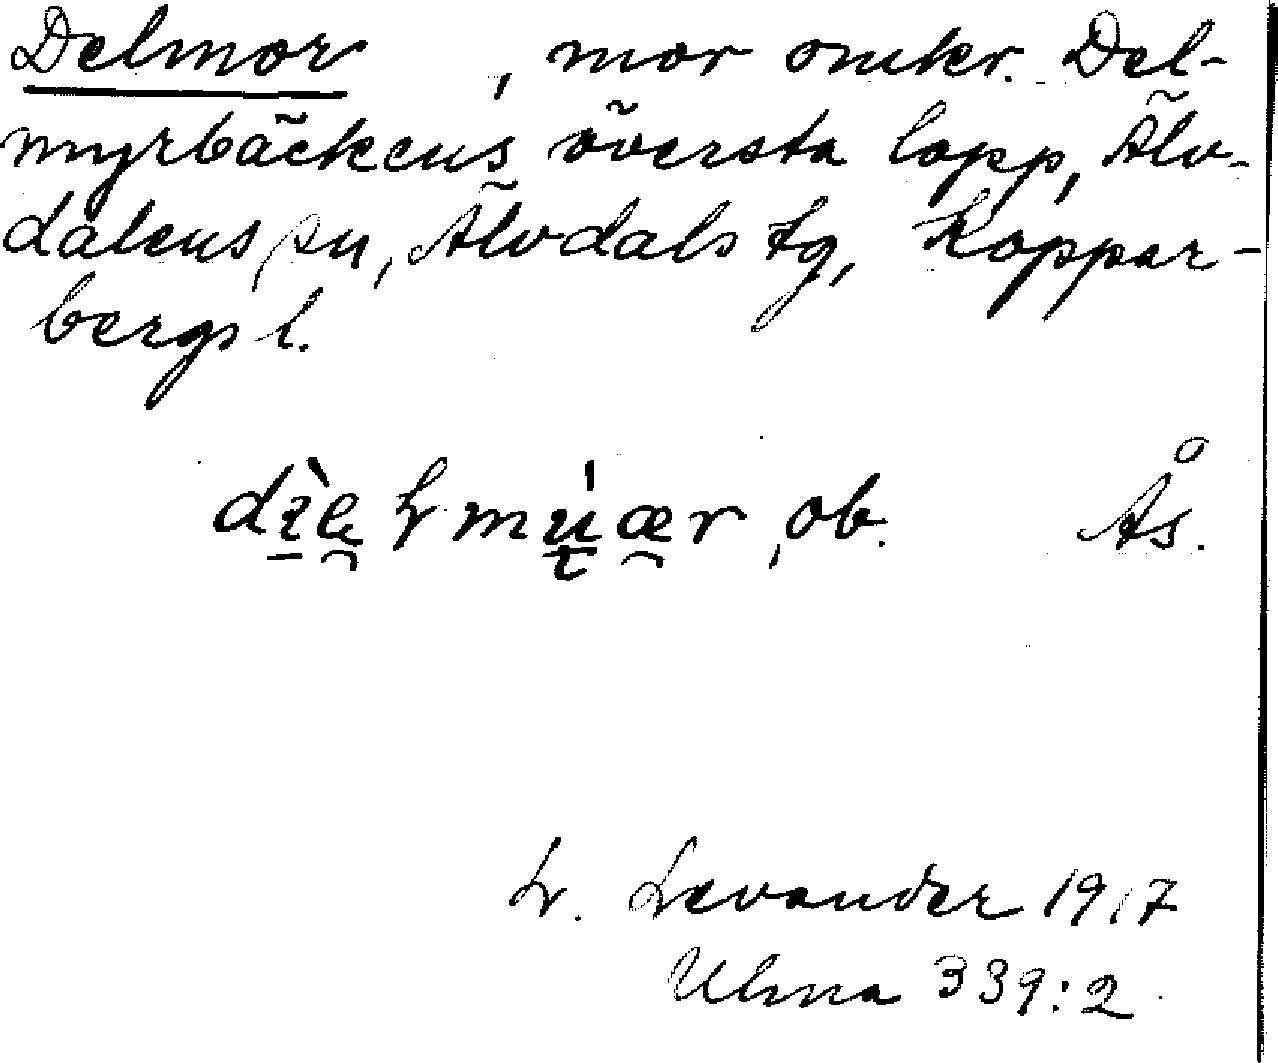 Delmor, mor omkr. Del-
myrbäckens översta lopp, Älv-
dalens sn, Älvdals tg, Koppar-
bergs l.
ob. Ås.
L. Levander 1917
Ulma 339:2